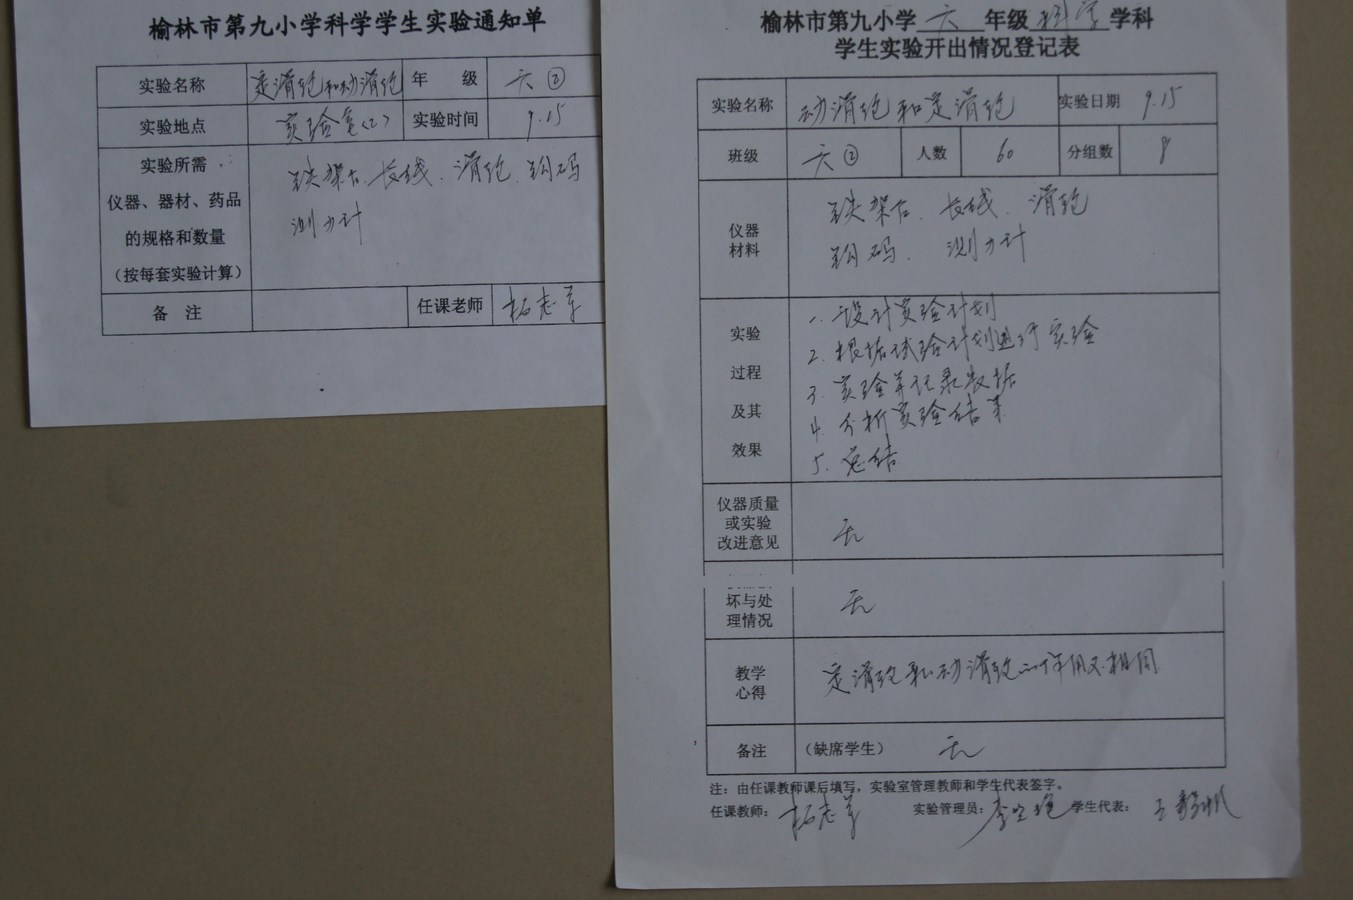 榆林市第九小学科学学生实验通知单
实验名称 定滑轮和动滑轮 年 级 六②
实验地点 实验室(2) 实验时间 9.15
实验所需
仪器、器材、药品
的规格和数量
(按每套实验计算)
铁架台、长线、滑轮、钩码
测力计
备 注 任课老师 拓志
榆林市第九小学 六 年级 科学 学科
学生实验开出情况登记表
实验名称 动滑轮和定滑轮 实验日期 9.15
班级 六② 人数 60 分组数 8
仪器
材料
铁架台、长线、滑轮
钩码、测力计
实验
过程
及其
效果
1. 设计实验计划
2. 根据试验计划进行实验
3. 实验并记录数据
4. 分析实验结果
5. 总结
仪器质量
或实验
改进意见
无
坏与处
理情况
无
教学
心得
定滑轮和动滑轮的作用不相同
备注 (缺席学生) 无
注:由任课教师课后填写,实验室管理教师和学生代表签字。
任课教师: 拓志 实验管理员: 李 学生代表: 王